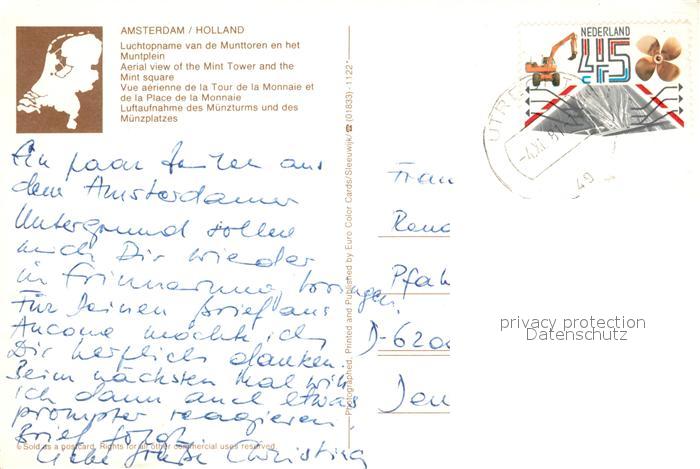 AMSTERDAM / HOLLAND
Luchtopname van de Munttoren en het
Muntplein
Aerial view of the Mint Tower and the
Mint square
Vue aérienne de la Tour de la Monnaie et
de la Place de la Monnaie
Luftaufnahme des Münzturms und des
Münzplatzes
NEDERLAND
45
UTRE
49
Ein paar Zeilen aus
dem Amsterdamer
Untergrund sollen
mich Dir wieder
in Erinnerung bringen.
Für Deinen Brief aus
Ancona möchte ich
Dir herzlich danken.
Beim nächsten Mal will
ich dann auch etwas
prompter reagieren.
Brief folgt
Liebe Grüße Christina
© Sold as a postcard. Rights for all other commercial uses reserved.
Photographed, Printed and Published by Euro Color Cards/Sleeuwijk/☎ (01833) - 1122*
Frau
Pfah
D-6200
privacy protection
Datenschutz